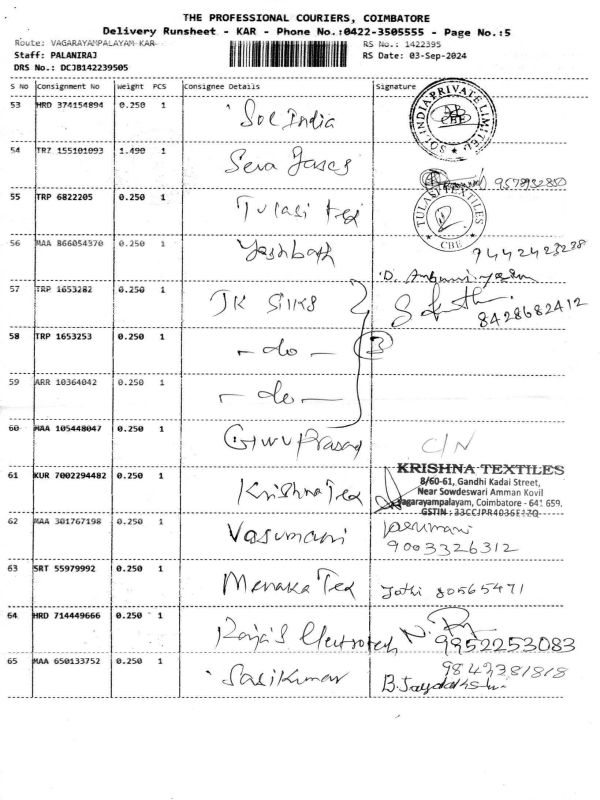 THE PROFESSIONAL COURIERS, COIMBATORE
Delivery Runsheet - KAR - Phone No.:0422-3505555 - Page No.:5
Route: VAGARAYAMPALAYAM KAR
RS No.: 1422395
Staff: PALANIRAJ
RS Date: 03-Sep-2024
DRS No.: DCJB142239505
S No Consignment No Weight PCS Consignee Details Signature
53 HRD 374154894 0.250 1 Sol India
SOL INDIA PRIVATE LIMITED
CBE
54 TRZ 155101093 1.490 1 Seva Gases
9578932850
55 TRP 6822205 0.250 1 Tulasi Tex
TULASI TEXTILES
CBE
56 MAA 866054370 0.250 1 Yashbath
9442423238
57 TRP 1653282 0.250 1 JK Silks
8428682412
58 TRP 1653253 0.250 1 - do - 3
59 ARR 10364042 0.250 1 - do -
60 MAA 105448047 0.250 1 Guru Prasad C/N
61 KUR 7002294482 0.250 1 Krishna Tex
KRISHNA TEXTILES
8/60-61, Gandhi Kadai Street,
Near Sowdeswari Amman Kovil
Vagarayampalayam, Coimbatore - 641 659.
GSTIN : 33CCJPR4036E1ZQ
62 MAA 301767198 0.250 1 Vasumani
9003326312
63 SRT 55979992 0.250 1 Menaka Tex Jothi 80565471
64 HRD 714449666 0.250 1 Rajas Electrotech N.
9952253083
65 MAA 650133752 0.250 1 Sasikumar
9842381818